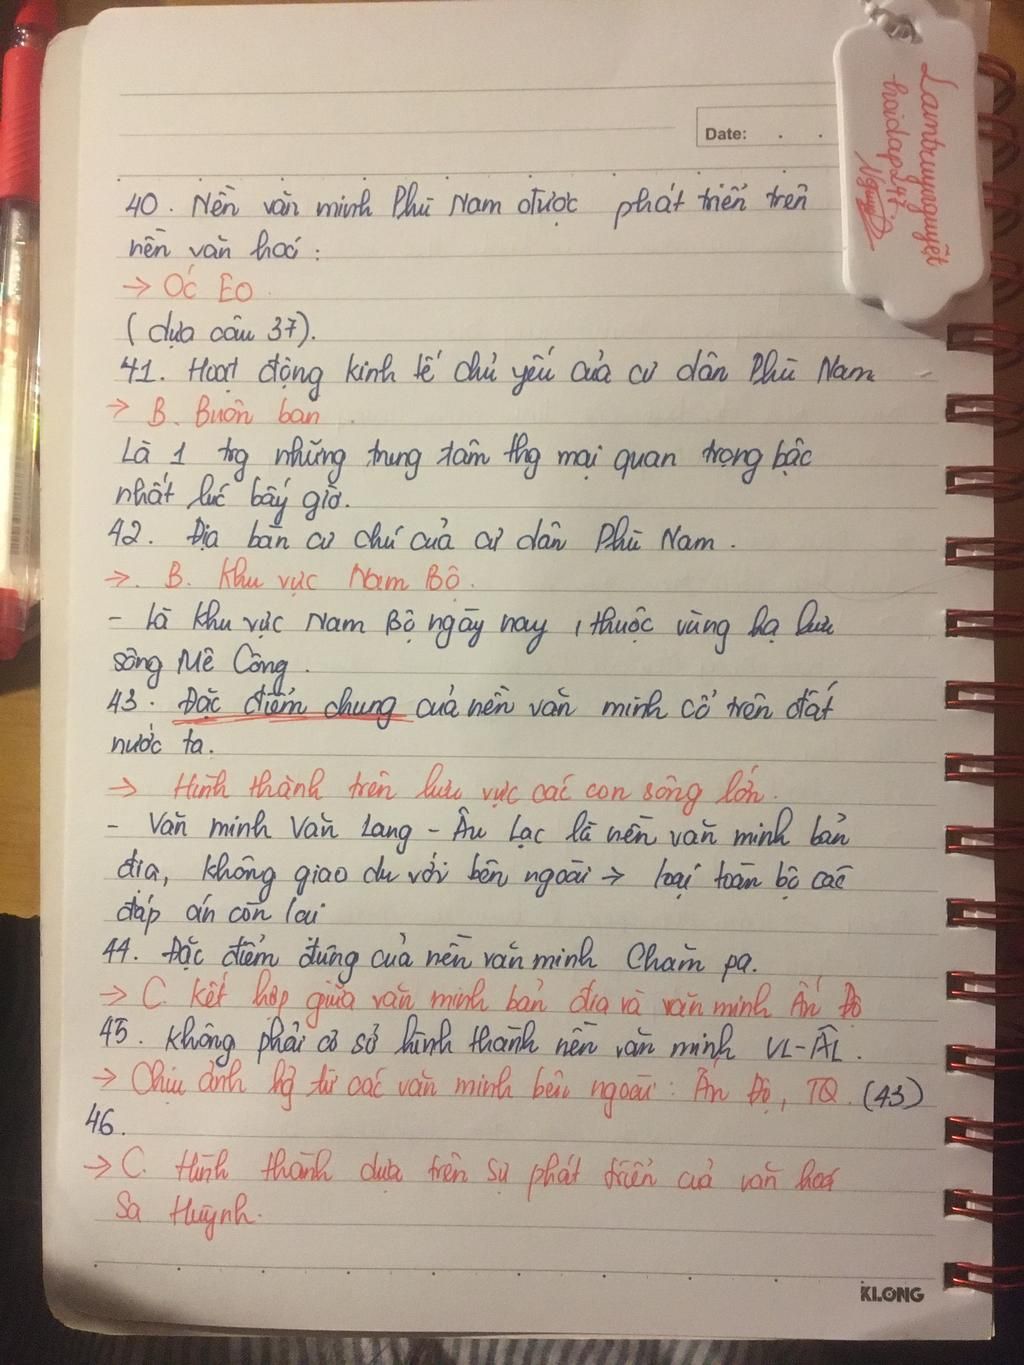 Date: . .
Lamtuynguyệt
hoidap247
40. Nền văn minh Phù Nam được phát triển trên
nền văn hoá :
→ Óc EO
( dựa câu 37).
41. Hoạt động kinh tế chủ yếu của cư dân Phù Nam
→ B. Buôn ban
Là 1 trg những trung tâm thg mại quan trọng bậc
nhất lúc bấy giờ.
42. Địa bàn cư chú của cư dân Phù Nam.
→ B. Khu vực Nam Bộ.
- là khu vực Nam Bộ ngày nay , thuộc vùng hạ lưu
sông Mê Công.
43. Đặc điểm chung của nền văn minh cổ trên đất
nước ta.
→ Hình thành trên lưu vực các con sông lớn.
- Văn minh Văn Lang - Âu Lạc là nền văn minh bản
địa, không giao du với bên ngoài → loại toàn bộ các
đáp án còn lại
44. Đặc điểm đúng của nền văn minh Chăm pa.
→ C. kết hợp giữa văn minh bản địa và văn minh Ấn Độ
45. Không phải cơ sở hình thành nền văn minh VL-ÂL.
→ Chịu ảnh hg từ các văn minh bên ngoài : Ấn Độ, TQ. (43)
46.
→ C. Hình thành dựa trên sự phát triển của văn hoá
Sa Huỳnh.
KLONG